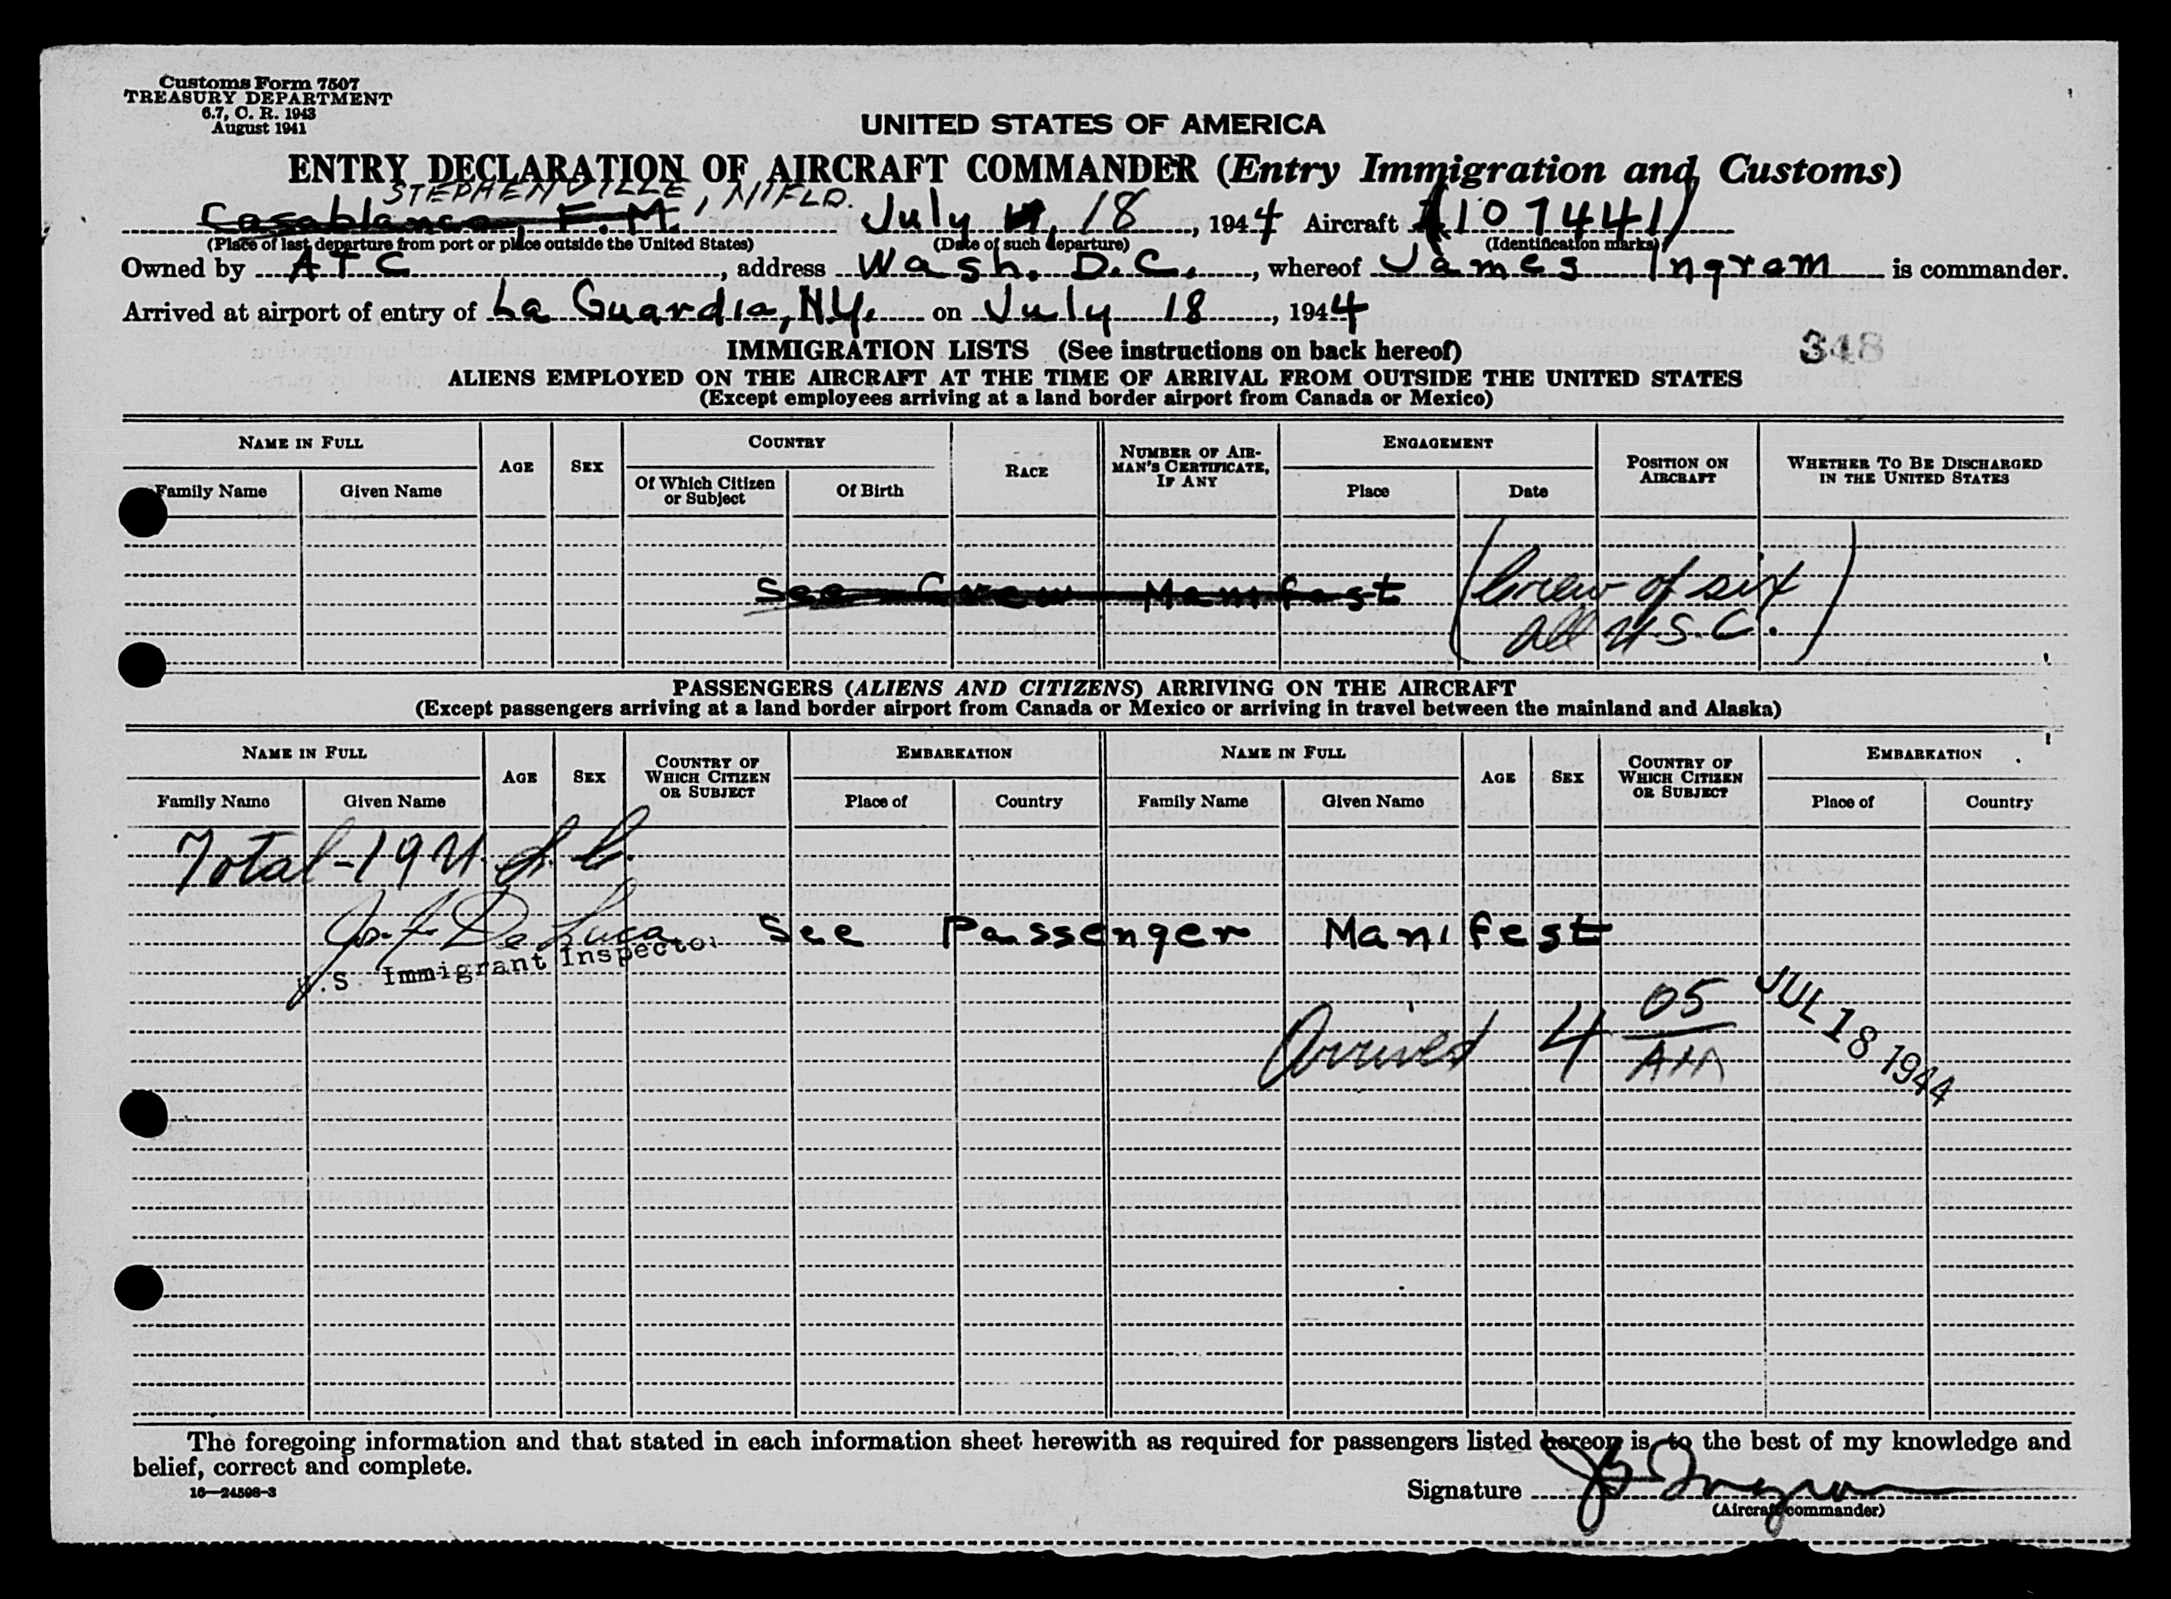 Customs Form 7507
TREASURY DEPARTMENT
6.7, C. R. 1943
August 1941
UNITED STATES OF AMERICA
ENTRY DECLARATION OF AIRCRAFT COMMANDER (Entry Immigration and Customs)
STEPHENVILLE, NFLD.
Casablanca, F.M. July 18, 1944 Aircraft (107441)
(Place of last departure from port or place outside the United States) (Date of such departure) (Identification marks)
Owned by ATC, address Wash. D.C., whereof James Ingram is commander.
Arrived at airport of entry of La Guardia, N.Y. on July 18, 1944
IMMIGRATION LISTS (See instructions on back hereof) 348
ALIENS EMPLOYED ON THE AIRCRAFT AT THE TIME OF ARRIVAL FROM OUTSIDE THE UNITED STATES
(Except employees arriving at a land border airport from Canada or Mexico)
NAME IN FULL AGE SEX COUNTRY RACE NUMBER OF AIRMAN'S CERTIFICATE, IF ANY ENGAGEMENT POSITION ON AIRCRAFT WHETHER TO BE DISCHARGED IN THE UNITED STATES
Family Name Given Name Of Which Citizen or Subject Of Birth Place Date
See Crew Manifest (Crew of six
all U.S.C.)
PASSENGERS (ALIENS AND CITIZENS) ARRIVING ON THE AIRCRAFT
(Except passengers arriving at a land border airport from Canada or Mexico or arriving in travel between the mainland and Alaska)
NAME IN FULL AGE SEX COUNTRY OF WHICH CITIZEN OR SUBJECT EMBARKATION NAME IN FULL AGE SEX COUNTRY OF WHICH CITIZEN OR SUBJECT EMBARKATION
Family Name Given Name Place of Country Family Name Given Name Place of Country
Total-19 U.S.C.
Jos. F. De Luca See Passenger Manifest
U.S. Immigrant Inspector
Arrived 4 05 AM JUL 18 1944
The foregoing information and that stated in each information sheet herewith as required for passengers listed hereon is to the best of my knowledge and
belief, correct and complete.
16—24598-3
Signature J Ingram
(Aircraft commander)